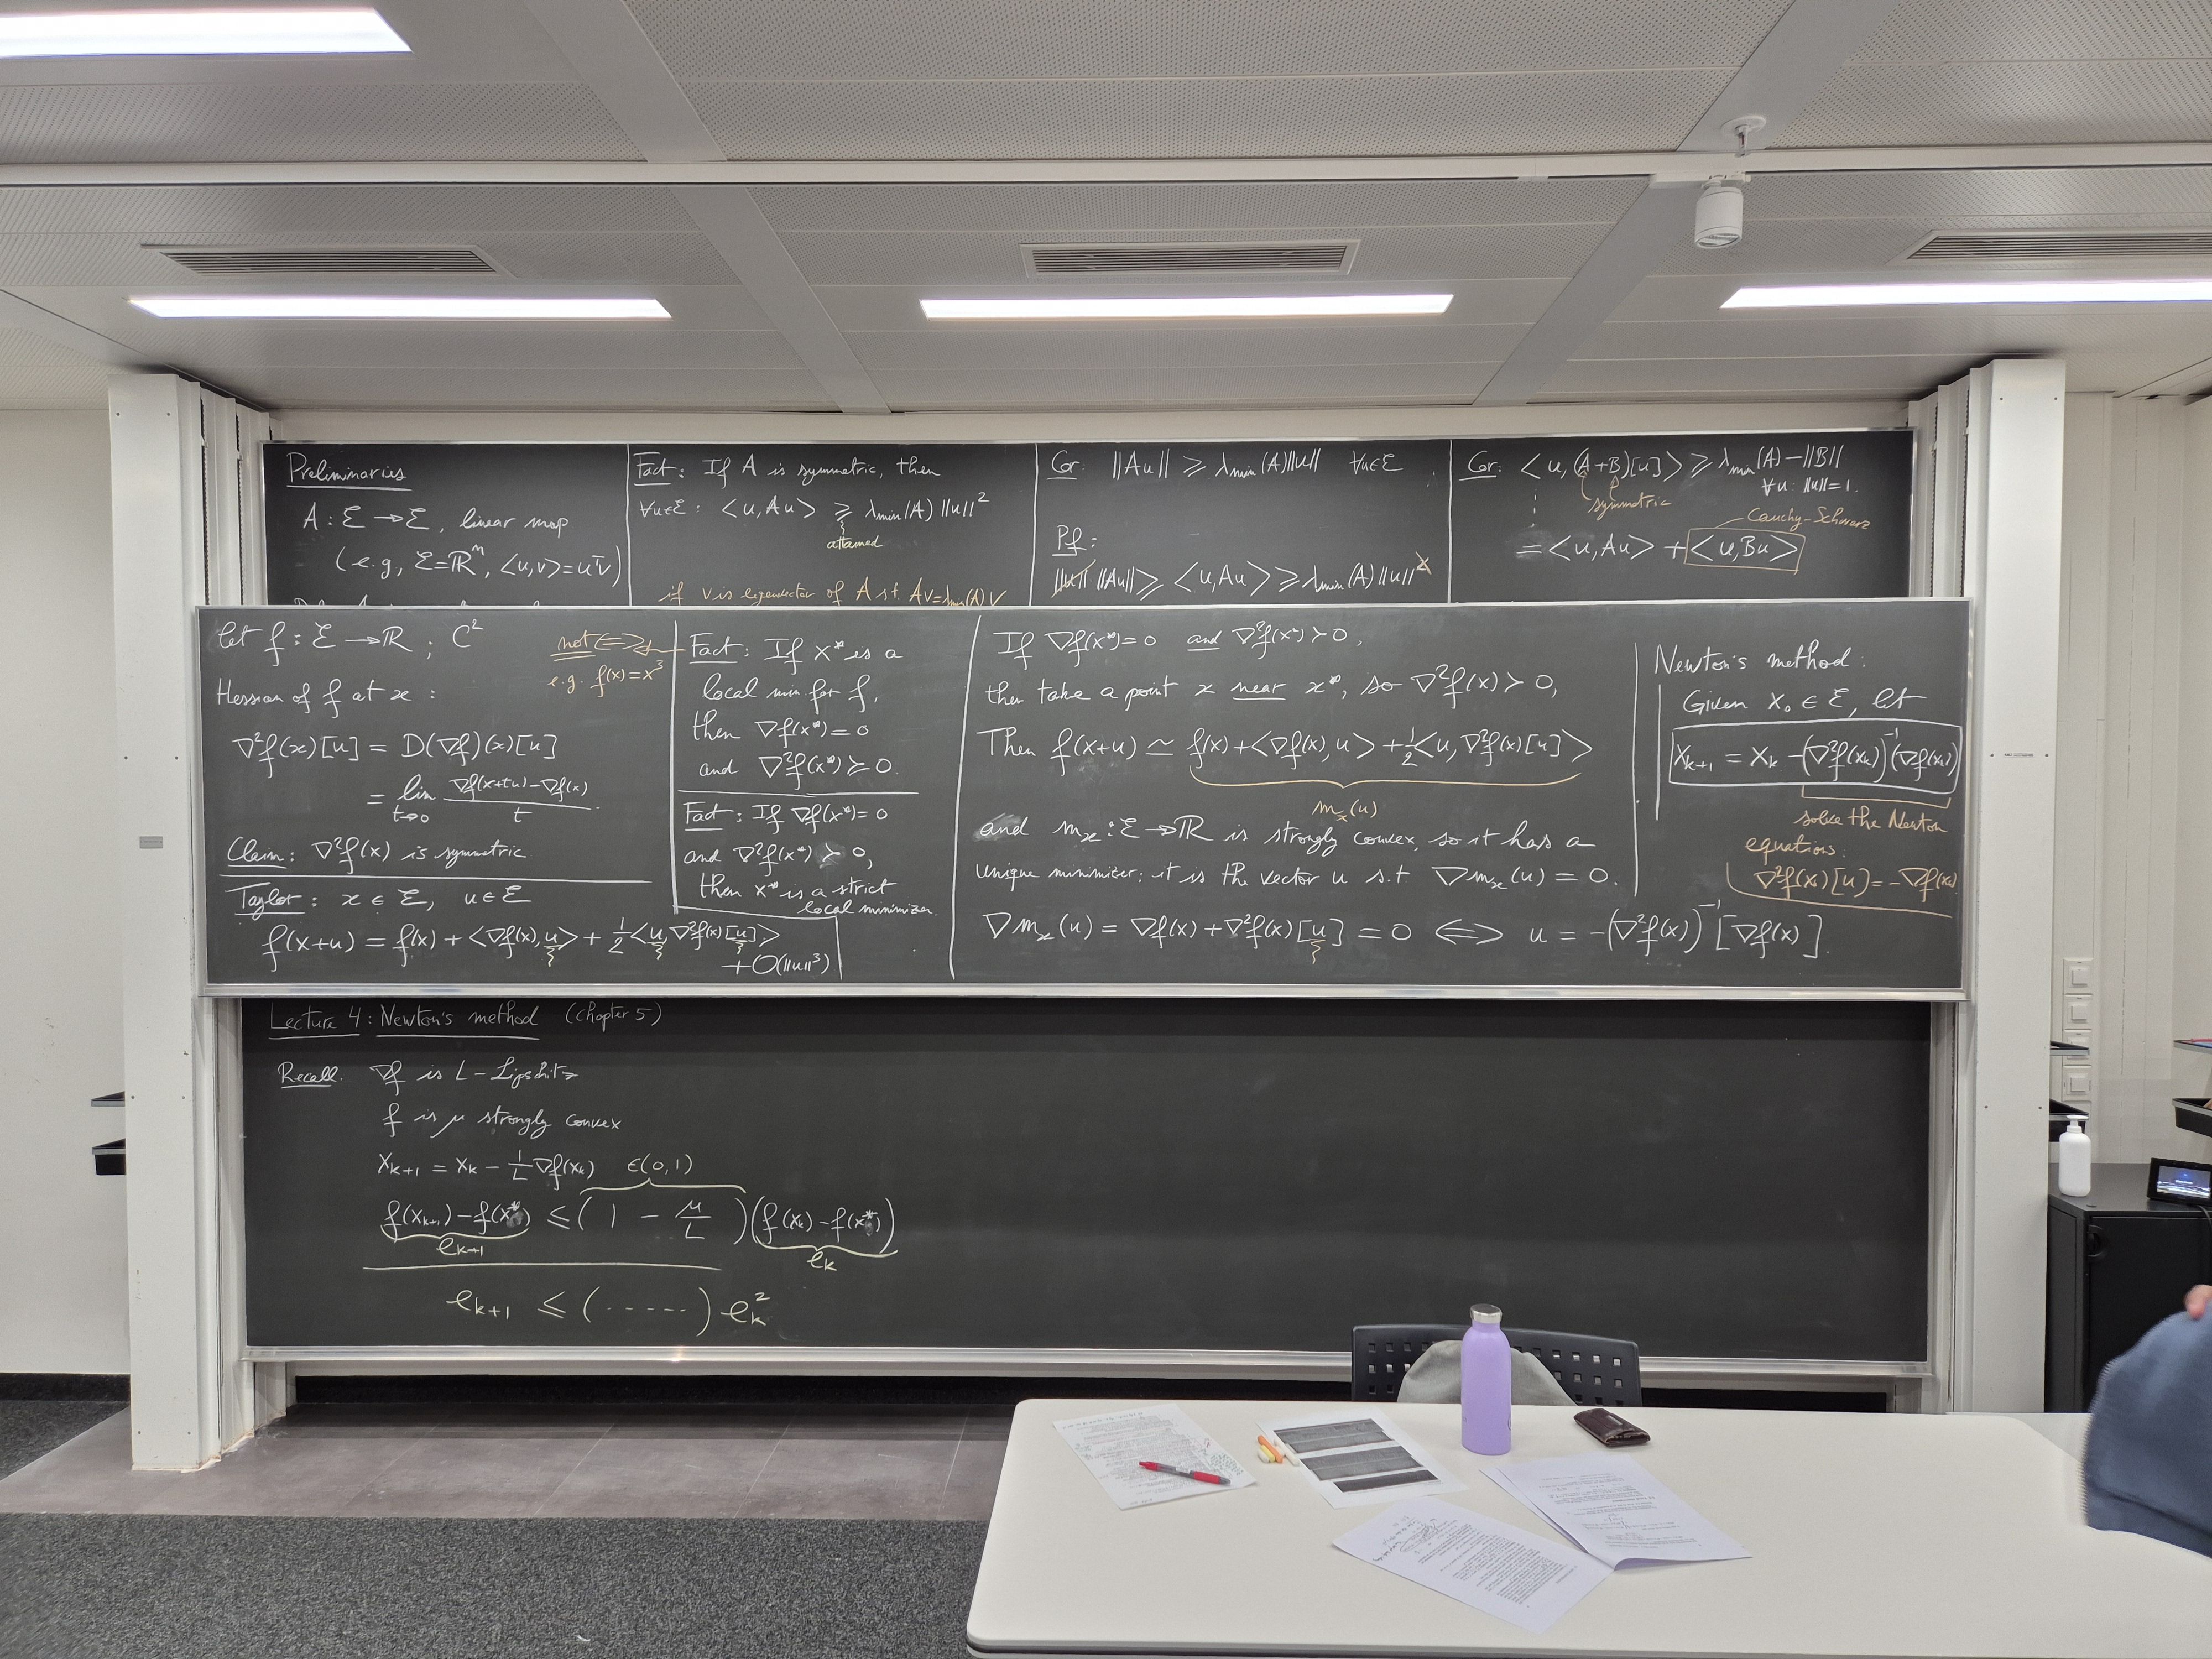 Preliminaries
A : E → E, linear map
(e.g., E = ℝⁿ, <u,v> = uᵀv)
Fact: If A is symmetric, then
∀u∈E : <u, Au> ⩾ λmin(A) ||u||²
attained
if v is eigenvector of A s.t. Av = λmin(A) v
Cor: ||Au|| ⩾ λmin(A)||u|| ∀u∈E
Pf:
||u|| ||Au|| ⩾ <u, Au> ⩾ λmin(A) ||u||²
Cor: <u, (A+B)[u]> ⩾ λmin(A) − ||B||
∀u: ||u||=1.
symmetric
Cauchy-Schwarz
= <u, Au> + <u, Bu>
Let f : E → ℝ ; C²
Hessian of f at x :
∇²f(x)[u] = D(∇f)(x)[u]
= lim t→0 (∇f(x+tu) − ∇f(x))/t.
Claim: ∇²f(x) is symmetric.
Taylor: x ∈ E, u ∈ E
f(x+u) = f(x) + <∇f(x), u> + ½<u, ∇²f(x)[u]>
+ O(||u||³)
not <=>
e.g. f(x) = x³
Fact: If x* is a
local min for f,
then ∇f(x*) = 0
and ∇²f(x*) ≽ 0.
Fact: If ∇f(x*) = 0
and ∇²f(x*) ≻ 0,
then x* is a strict
local minimizer.
If ∇f(x*) = 0 and ∇²f(x*) ≻ 0,
then take a point x near x*, so ∇²f(x) ≻ 0,
Then f(x+u) ≃ f(x) + <∇f(x), u> + ½<u, ∇²f(x)[u]>
mₓ(u)
and mₓ : E → ℝ is strongly convex, so it has a
unique minimizer: it is the vector u s.t ∇mₓ(u) = 0.
∇mₓ(u) = ∇f(x) + ∇²f(x)[u] = 0 <=> u = −(∇²f(x))⁻¹[∇f(x)].
Newton's method:
Given x₀ ∈ E, let
xₖ₊₁ = xₖ − (∇²f(xₖ))⁻¹(∇f(xₖ))
solve the Newton
equations.
∇²f(xₖ)[u] = −∇f(xₖ)
Lecture 4: Newton's method (chapter 5)
Recall. ∇f is L-Lipshitz
f is μ strongly convex
xₖ₊₁ = xₖ − 1/L ∇f(xₖ) ∈(0,1)
f(xₖ₊₁) − f(x*) ⩽ (1 − μ/L)(f(xₖ) − f(x*))
eₖ₊₁ eₖ
eₖ₊₁ ⩽ (-----) eₖ²